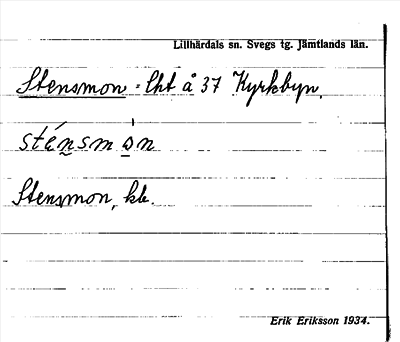 Lillhärdals sn. Svegs tg. Jämtlands län.
Stensmon = lht å 37 Kyrkbyn.
sténsmòn
Stensmon, kb.
Erik Eriksson 1934.